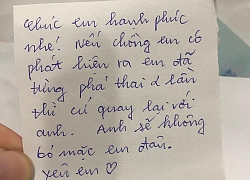 Chúc em hạnh phúc
nhé! Nếu chồng em có
phát hiện ra em đã
từng phá thai 2 lần
thì cứ quay lại với
anh. Anh sẽ không
bỏ mặc em đâu.
Yêu em ♡